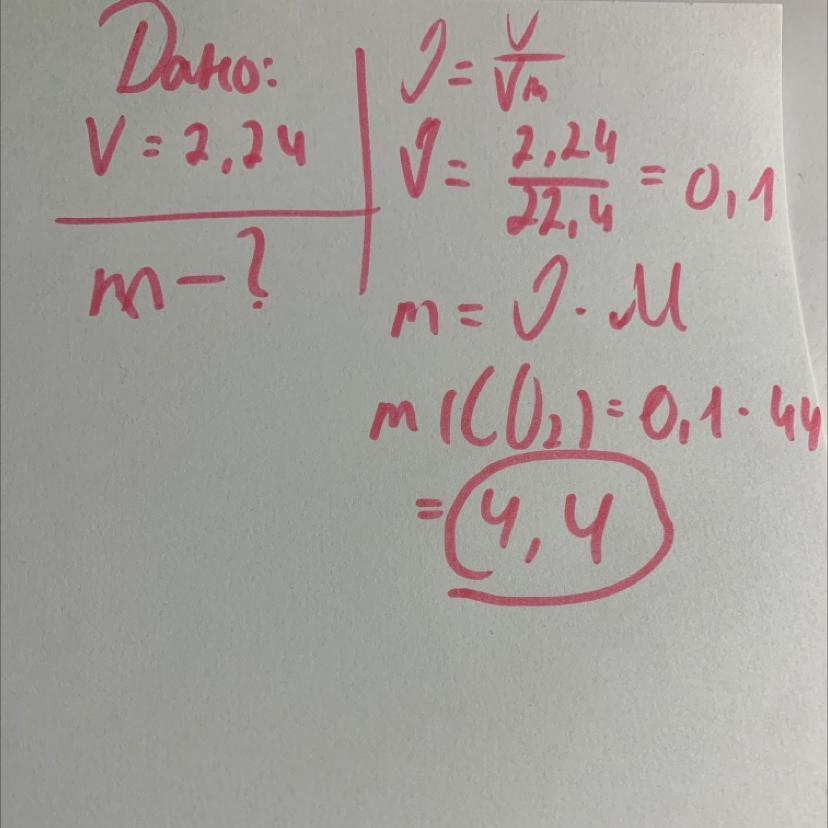 Дано:
V = 2,24
m - ?
ν = V/Vm
ν = 2,24/22,4 = 0,1
m = ν · M
m (CO₂) = 0,1 · 44
= 4,4